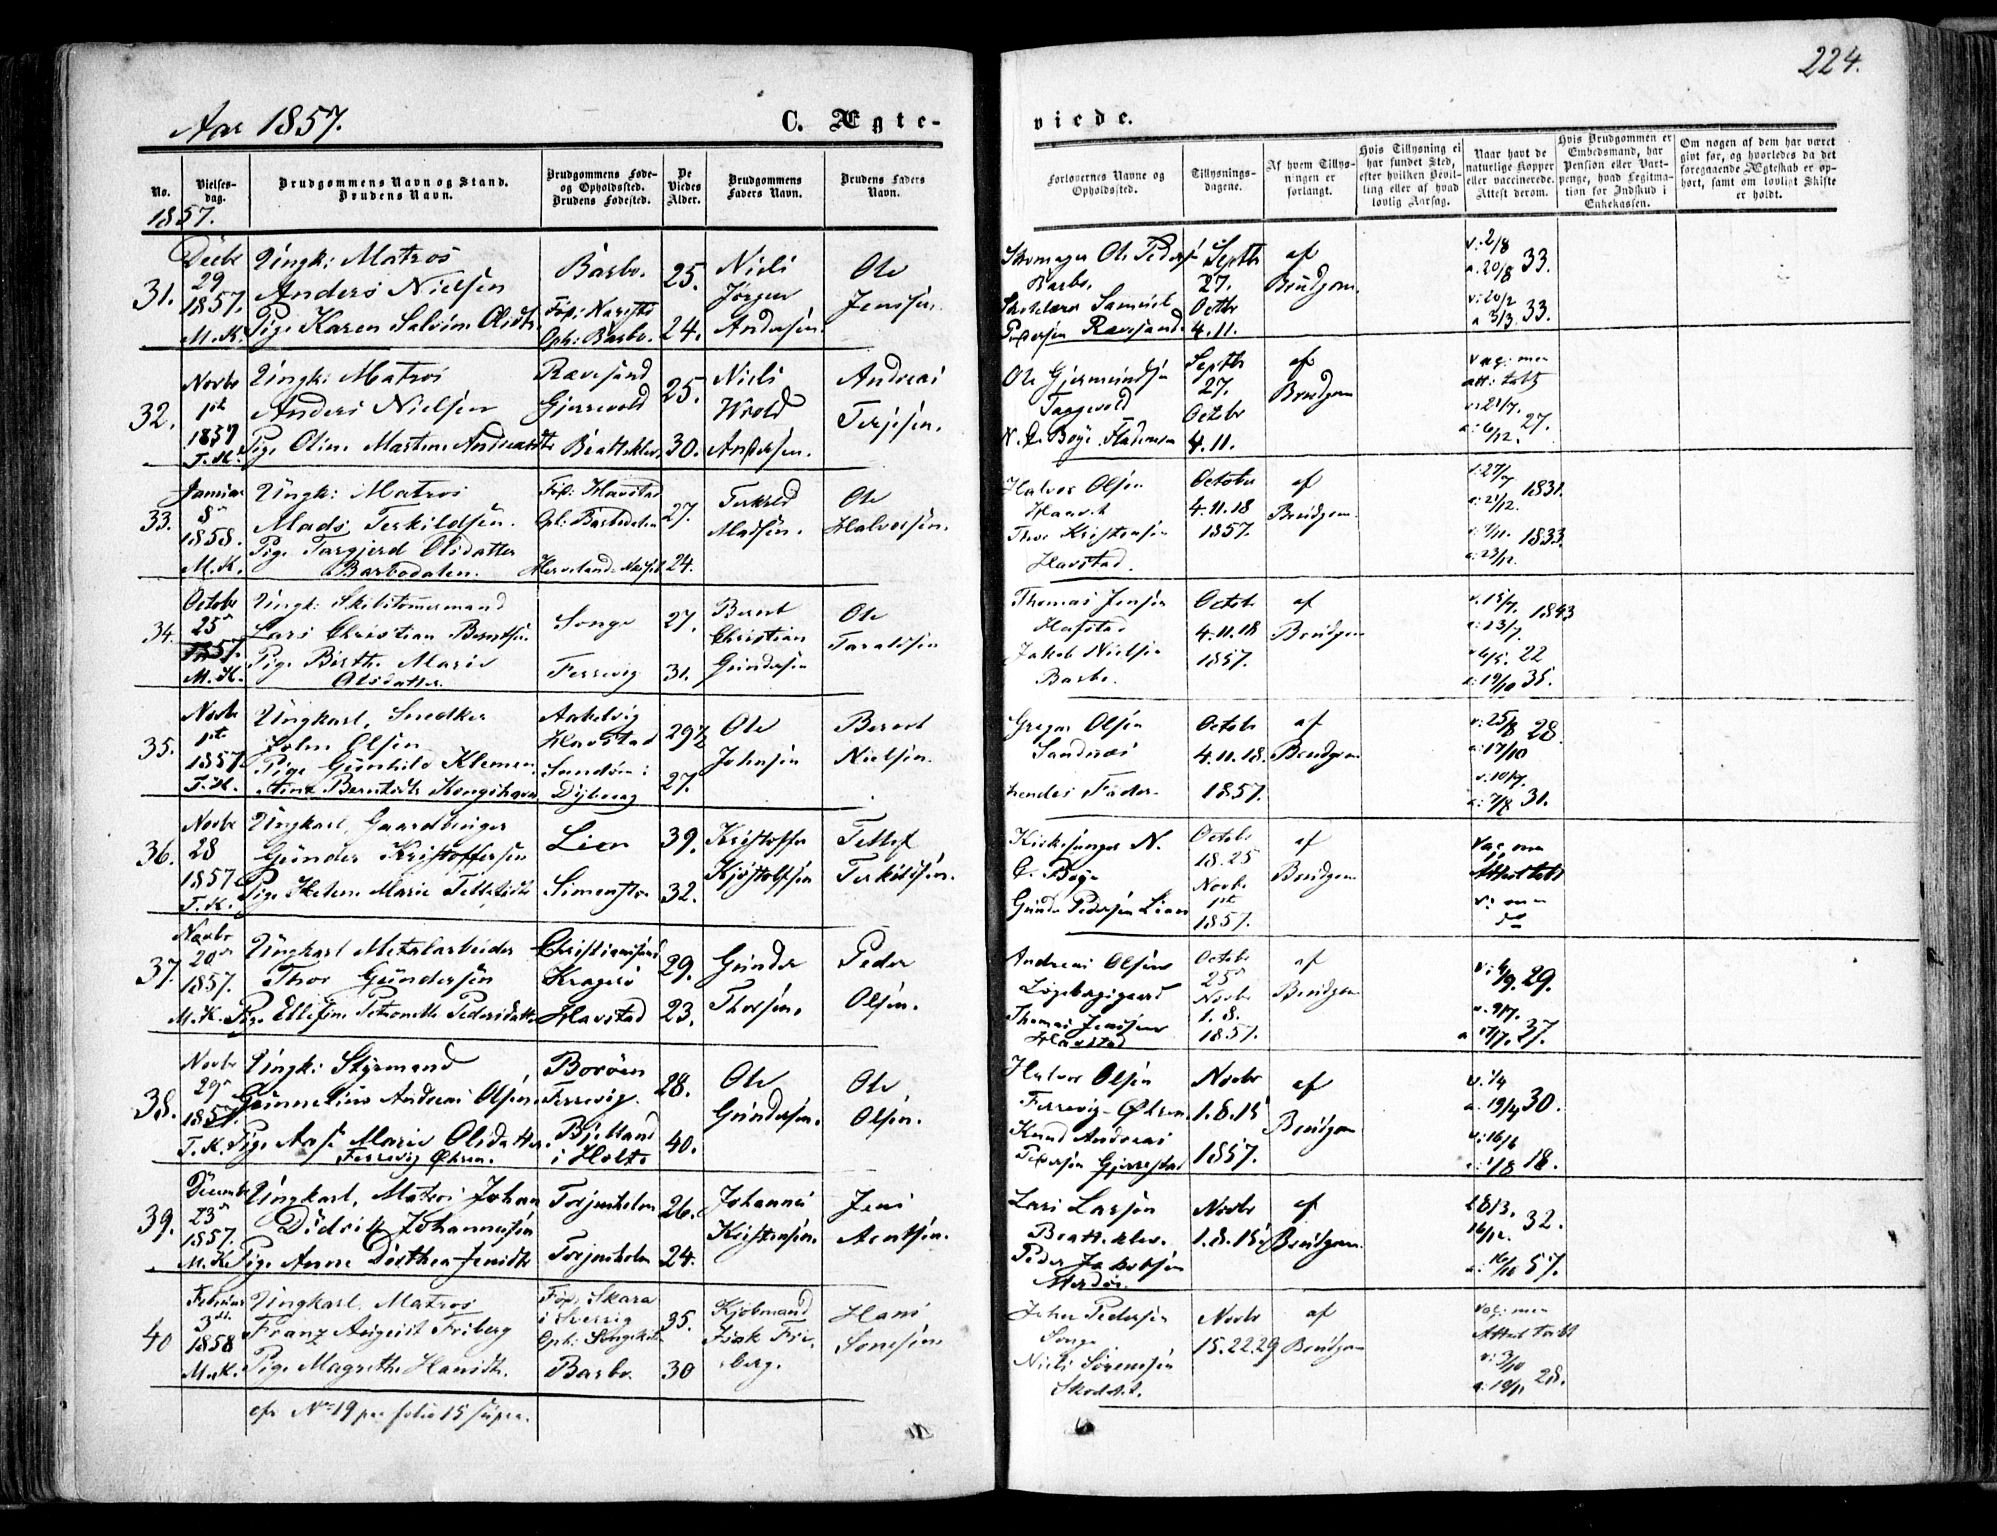 224.
Aar 1857.
C. Ægte-
viede.
No.
Vielses-
dag.
Brudgommens Navn og Stand.
Brudens Navn.
Brudgommens Føde-
og Opholdssted.
Brudens Fødested.
De
Viedes
Alder.
Brudgommens
Faders Navn.
Brudens Faders
Navn.
Forlovernes Navne og
Opholdssted.
Tillysnings-
dagene.
Af hvem Tillys-
ningen er
forlangt.
Hvis Tillysning ei
har fundet Sted,
efter hvilken Bevil-
ling eller af hvad
lovlig Aarsag.
Naar havt de
naturlige Kopper
eller vaccinerede.
Attest derom.
Hvis Brudgommen er
Embedsmand, har
Pension eller Vart-
penge, hvad Legitma-
tion for Indskud i
Enkekassen.
Om nogen af dem har været
givt før, og hvorledes da det
foregaaende Ægteskab er op-
hørt, samt om lovligt Skifte
er holdt.
1857.
31.
Decbr
29
1857.
M.K.
Ungk: Matros
Anders Nielsen
Pige Karen Olsdtr
Barbo.
Oph: Barbo.
25.
24.
Niels
Jørgen
Andersen.
Ole
Jensen.
Skomager Ole Peders
Barbo.
Samuel
Pedersen Rævesand.
Septbr
27.
Octbr
4.11.
af
Brudgom.
v: 2/8
a. 20/8 33.
v: 20/2
a 3/3. 33.
32.
Novbr
1ste
1857
T.K.
Ungk: Matros
Anders Nielsen
Pige Oline Martine Andreasdtr
Rævesand
Gjerrevold
Bratteklev
25.
30.
Niels
Wold
Andersen.
Andreas
Terjesen.
Ole Gjermundsen
N. Boye
Septbr
27.
Octobr
4.11.
af
Brudgom
vac: men
att: tabt
v: 21/7.
a: 6/12. 27.
33.
Januar
8de
1858.
M.K.
Ungk: Matros
Mads Terkildsen.
Pige Targjerd Olsdatter
Barbodalen.
Føs: Havstad
Oph: Barbodalen
27.
24.
Terkild
Madsen.
Ole
Halvorsen.
Halvor Olsen
Thor Kristensen
Havstad.
October
4.11.18
1857.
af
Brudgom.
a: 21/12. 1831.
1833.
a: 23/12.
34.
Octobr
25de
1857.
M.K.
Ungk: Skibstømmermand
Lars Christian Berntsen
Pige Birthe Marie
Olsdatter.
Songe
Fervig
27.
31.
Bernt
Christian
Gundersen
Ole
Taraldsen
Thomas Jensen
Havstad
Jakob Nielsen
Barbo.
Octobr
4.11.18
1857.
af
Brudgom
v. 15/7. 1843
a: 23/7
22
a: 19/10 35.
35.
Novbr
1ste
1857.
T.K.
Ungkarl, Snedker
John Olsen
Pige Gunhild Klemen
tine Berntsdtr Kongshavn
Havstad
Dybvaag
29 1/2
27.
Ole
Johnsen
Bernt
Nielsen.
Gregar Olsen
Sandnæs
hendes Fader
Octobr
4.11.18.
1857.
af
Brudgom
v: 25/8 28.
a: 17/10
v: 10/7.
a: 7/8 31.
36.
Novbr
28
1857
T.K.
Ungkarl, Gaardbruger
Gunder Kristoffersen
Pige Helene Marie Tellefsdtr
Lien
Simonstv
39.
32.
Kristoffer
Kjøstolfsen
Tellef
Terkildsen.
Kirkesanger N.
C. Boye
Gunder Pedersen Lien
Octobr
18.25
Novbr
1ste
1857.
af
Brudgom
Vac, men
Attest tabt
v: men
do
37.
Novbr
20de
1857.
M.K.
Ungkarl Metalarbeider
Thor Gundersen
Pige Ellefine Petronelle Pedersdatter
Christiansund
Kragerø
Havstad
29.
23.
Gunder
Thorsen.
Peder
Olsen.
Andreas Olsen
Løgebergsgaard
Thomas Jensen
Havstad
Octobr
25de
Novbr
1. 8.
1857.
af
Brudgom
29.
v: 9/7.
a 17/7. 37.
38.
Novbr
29de
1857.
T.K.
Ungk: Styrmand
Gunnelius Andreas Olsen
Pige Aase Marie Olsdatter
Fervig Øhren.
Borøen
Fervig.
Bjelland
i Holt
28.
40.
Ole
Gundersen.
Ole
Olsen.
Halvor Olsen
Fervig-Øhren
Knud Andreas
Pedersen Gjerrestad
Novbr
1.8.15
1857.
af
Brudgom
v: 1/4
a. 19/4 30.
v: 16/6
a: 1/8 18.
39.
December
23de
1857.
M.K.
Ungkarl, Matros Johan
Didrik Johannesen
Pige Anne Dorthea Jensdtr
Torjusholm
Torjusholm
26.
24.
Johannes
Kristensen.
Jens
Arntsen.
Lars Larsen
Bratteklev.
Peder Jakobsen
Merdø.
Novbr
1.8.15
af
Brudgom
32.
16/12.
a: 16/10 57.
40
Februar
3die
1858
M.K.
Ungkarl, Matros
Franz August Friberg
Pige Magrethe Hansdtr.
Føs: Skara
i Sverrig
Barbo
35.
30
Kjøbmand
Isak Fri-
berg.
Hans
Sonesen
Peder Pedersen
Songe
Niels Sørensen
Novbr
15.22.29
af
Brudgom
vac: men
Attest tabt
v: 3/10
a: 19/11 28.
cfr No 19 pro folio 15 supra.